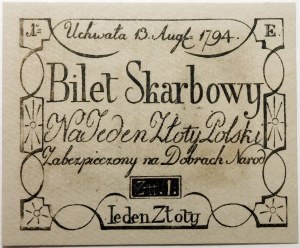 Uchwała 13. Augt 1794.
E.
Bilet Skarbowy
Na Jeden Złoty Polski
Zabezpieczony na Dobrach Narod
Zł: 1.
Ieden Złoty